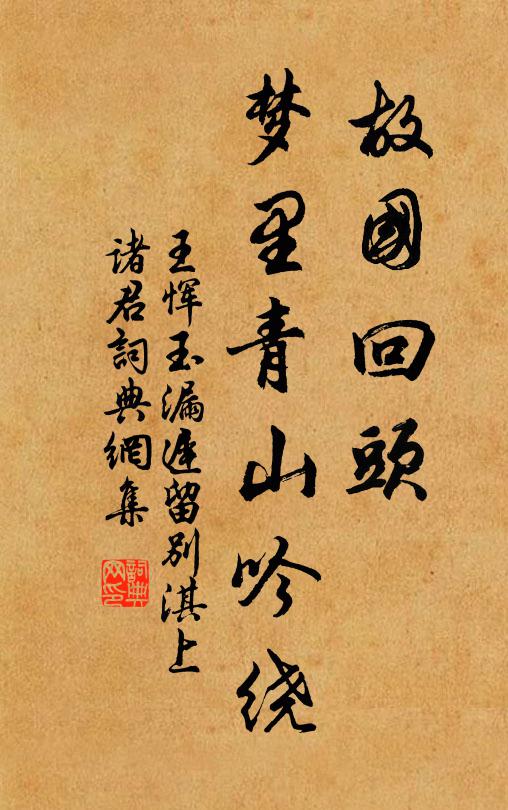 故國回頭
梦里青山吟绕
王恽玉漏遲留别淇上
诸君詞典網集
詞典网印